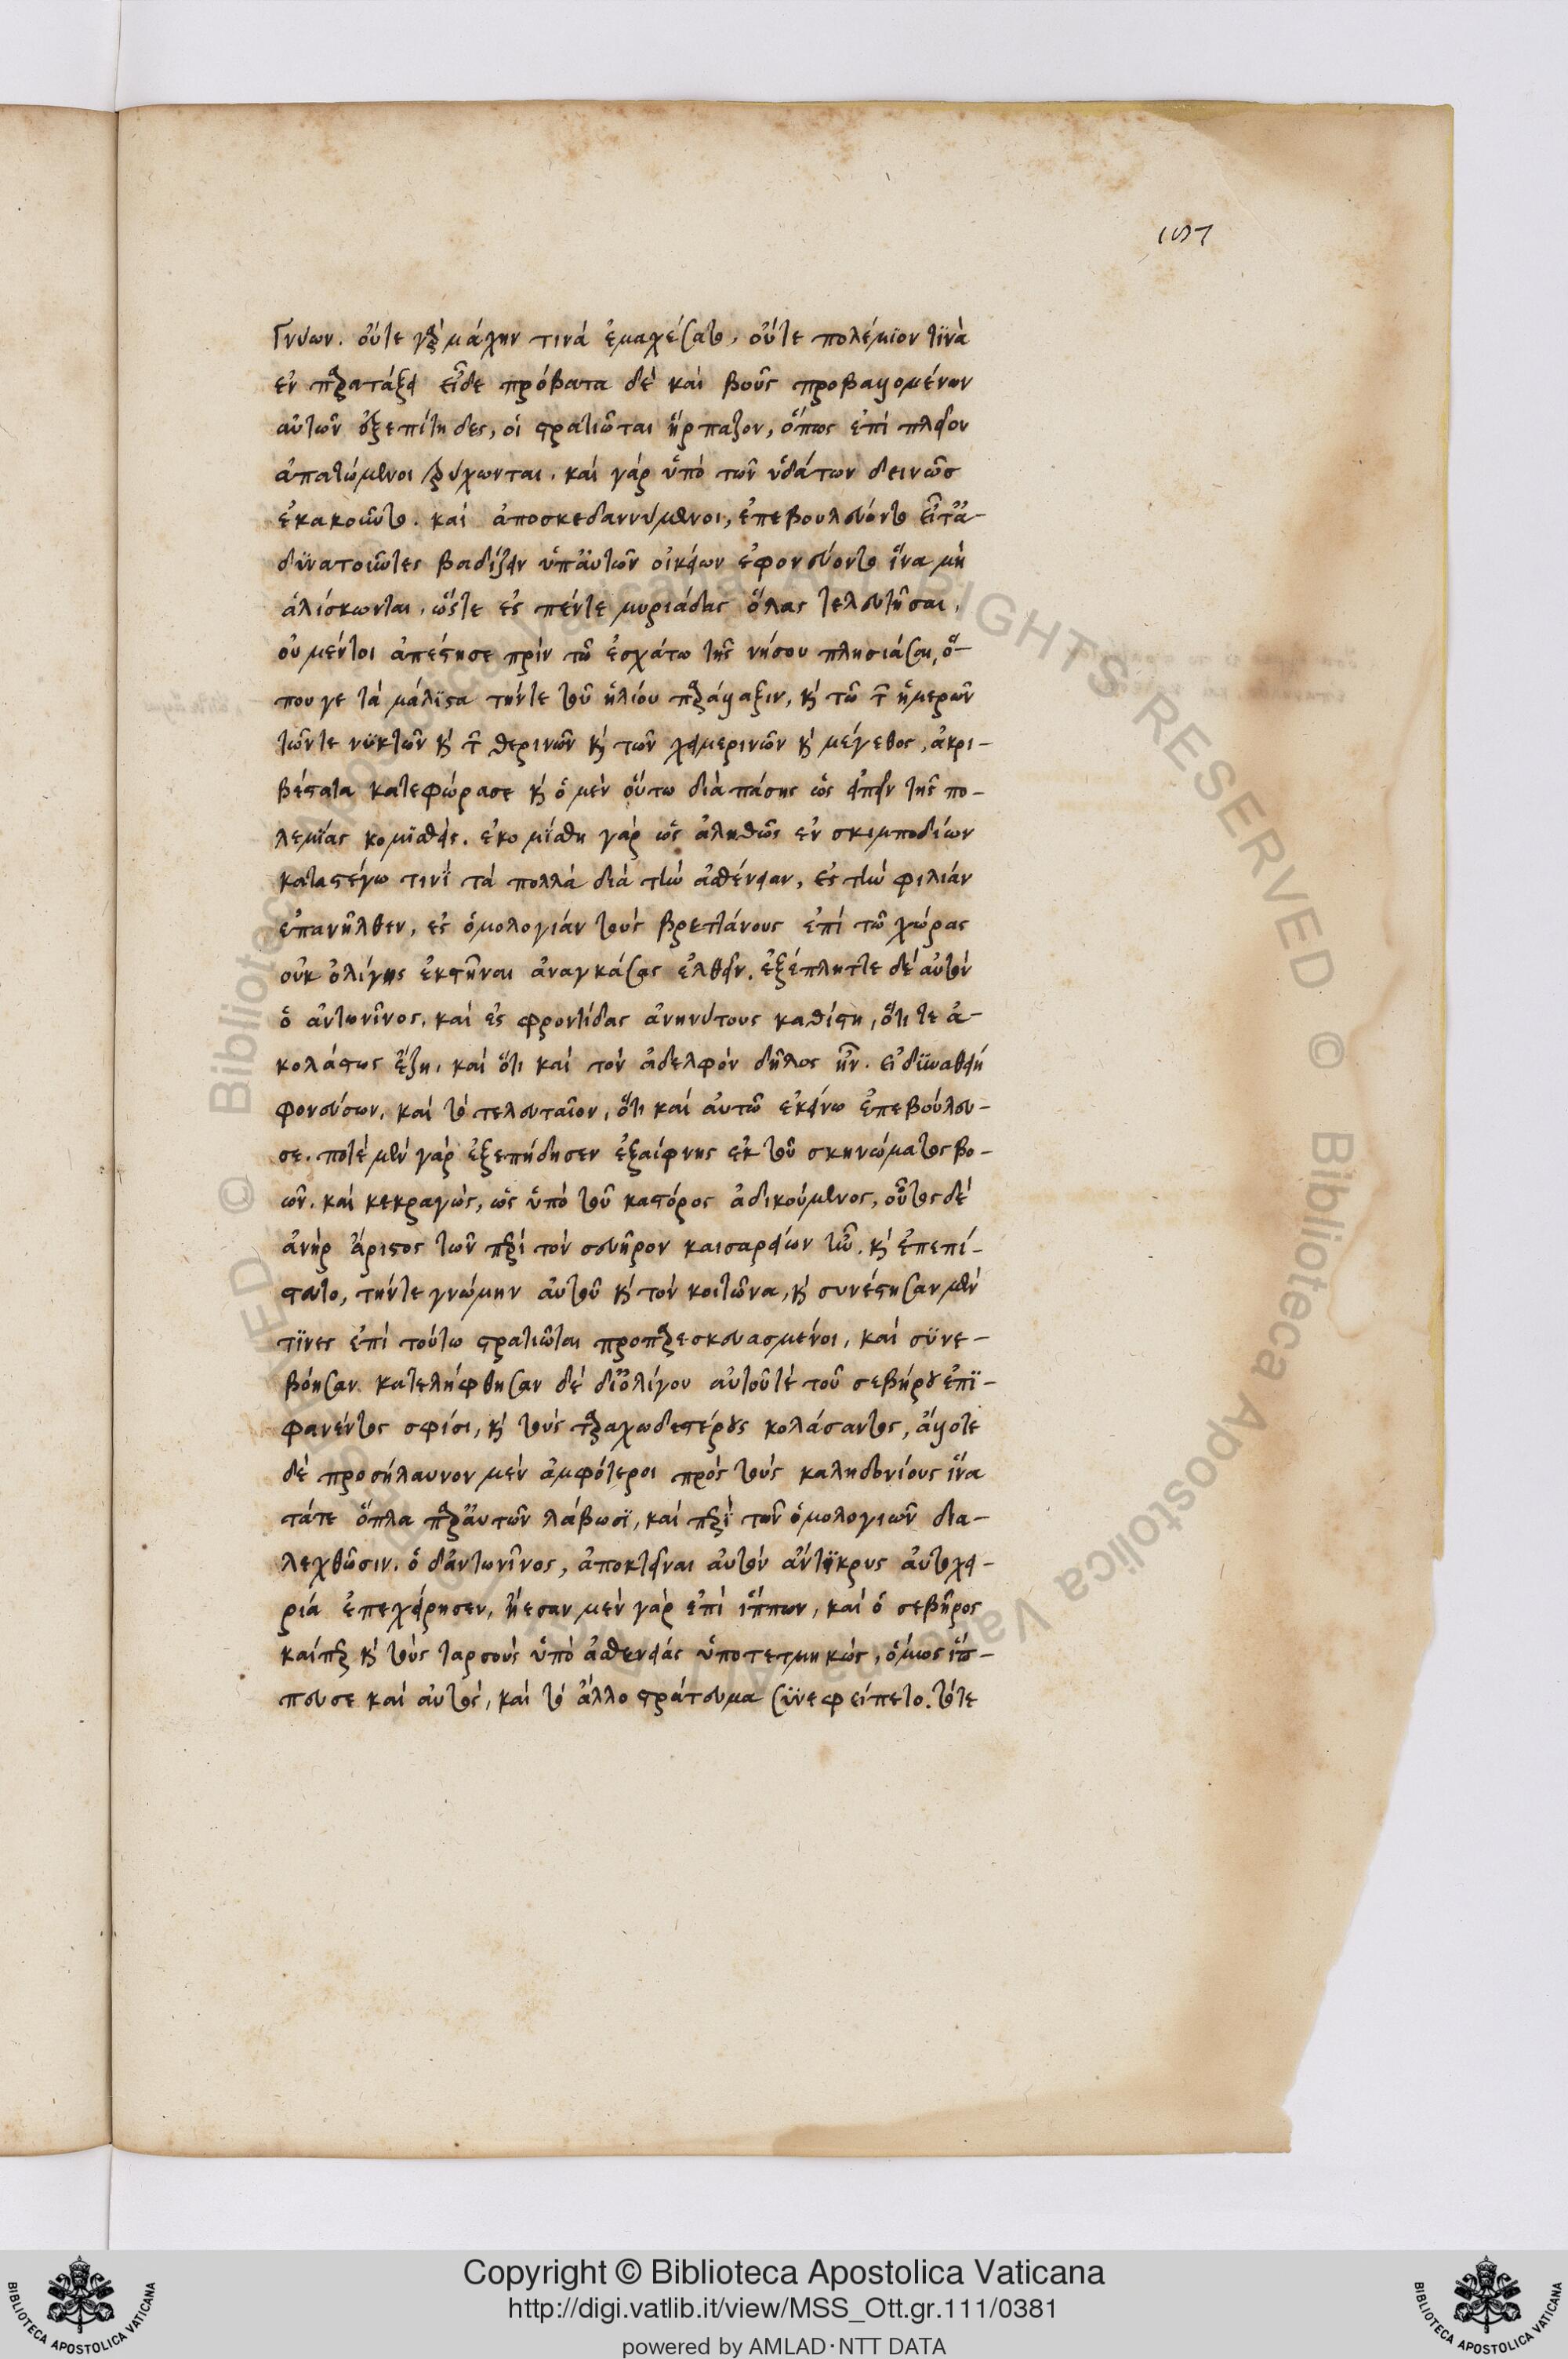 γνύων. οὔτε γὰρ μάχην τινά ἐμαχέσατο, οὔτε πολέμϊον τϊνὰ
ἐν παρατάξει εἶδε πρόβατα δὲ καὶ βοῦς προβαλλομένων
αὐτῶν ἐξεπίτηδες, οἱ στρατιῶται ἥρπαζον, ὅπως ἐπὶ πλεῖον
ἀπατώμενοι τρύχωνται. καὶ γάρ ὑπὸ τῶν ὑδάτων δεινῶσ
ἐκακοῦντο. καὶ ἀποσκεδαννύμενοι, ἐπεβουλεύοντο εἶτ ἀ-
δϋνατοῦντες βαδίζειν ὑπ αὐτῶν οἰκείων ἐφονεύοντο ἵνα μὴ
ἁλίσκωνται. ὥστε ἐς πέντε μυριάδας ὅλας τελευτῆσαι.
οὐ μέντοι ἀπέστησε πρίν τῶ ἐσχάτω τῆς νήσου πλησιάσαι, ὅ-
που γε τὰ μάλϊστα τήντε τοῦ ἡλίου παράλλαξιν, καὶ τῶ τῶν ἡμερῶν
τῶντε νϋκτῶν καὶ τῶν θερινῶν καὶ τῶν χειμερινῶν καὶ μέγεθος, ἀκρι-
βέστατα κατεφώρασε καὶ ὁ μὲν οὕτω διὰ πάσης ὡς εἰπεῖν τῆς πο-
λεμΐας κομϊσθείς. ἐκομΐσθη γὰρ ὡς ἀληθῶς ἐν σκιμποδίων
καταστέγω τινΐ τὰ πολλὰ διὰ τὴν ἀσθένειαν, ἐς τὴν φιλιάν
ἐπανῆλθεν, ἐς ὁμολογιάν τοὺς βρεττάνους ἐπὶ τῶ χώρας
οὐκ ὀλίγης ἐκστῆναι ἀναγκάσας ἐλθεῖν. ἐξέπληττε δὲ αὐτὸν
ὁ ἀντωνῖνος. καὶ ἐς φροντίδας ἀνηνύτους καθίστη, ὅτι τε ἀ-
κολάστως ἔζη. καὶ ὅτι καὶ τὸν ἀδελφὸν δῆλος ἦν. εἰ δϋνηθείη
φονεύσων. καὶ τὸ τελευταῖον, ὅτι καὶ αὐτῶ ἐκείνω ἐπεβούλευ-
σε. ποτὲ μὲν γὰρ ἐξεπήδησεν ἐξαίφνης ἐκ τοῦ σκηνώματος βο-
ῶν. καὶ κεκραγώς, ὡς ὑπὸ τοῦ καστόρος ἀδικούμενος, οὗτος δὲ
ἀνὴρ ἄριστος τῶν περὶ τὸν σευῆρον καισαρείων ἦν. καὶ ἐπεπί-
στευτο, τήντε γνώμην αὐτοῦ καὶ τὸν κοιτῶνα, καὶ συνέστησαν μὲν
τϊνες ἐπὶ τούτω στρατιῶται προπαρεσκευασμένοι, καὶ σϋνε-
βόησαν κατελήφθησαν δὲ δι ὀλίγου αὐτοῦτὲ τοῦ σεβήρου ἐπϊ-
φανέντος σφίσι, καὶ τοὺς ταραχωδεστέρους κολάσαντος, ἄλλοτε
δὲ προσήλαυνον μὲν ἀμφότεροι πρὸς τοὺς καληδονίους ἵνα
τάτε ὅπλα παρ αὐτῶν λάβωσϊ, καὶ περὶ τῶν ὁμολογιῶν δια-
λεχθῶσιν. ὁ δ ἀντωνῖνος, ἀποκτεῖναι αὐτὸν ἀντϊκρυς αὐτοχει-
ριά ἐπεχείρησεν, ἤεσαν μὲν γὰρ ἐπὶ ἵππων, καὶ ὁ σεβῆρος
καίπερ καὶ τοὺς ταρσοὺς ὑπὸ ἀσθενείας ὑποτετμηκώς, ὅμως ἵπ-
πευσε καὶ αὐτὸς, καὶ τὸ ἄλλο στράτευμα σϋνεφείπετο. τότε
Copyright © Biblioteca Apostolica Vaticana
http://digi.vatlib.it/view/MSS_Ott.gr.111/0381
powered by AMLAD·NTT DATA